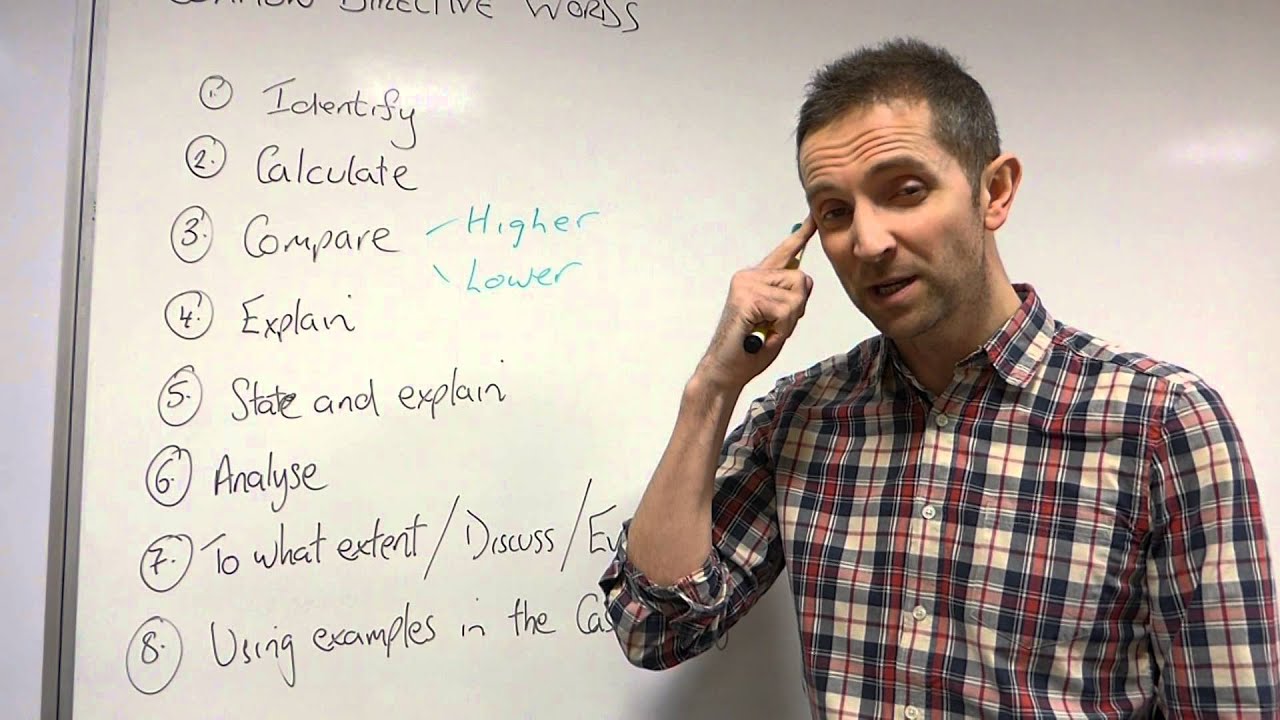 COMMON DIRECTIVE WORDS
1. Identify
2. Calculate
3. Compare
Higher
Lower
4. Explain
5. State and explain
6. Analyse
7. To what extent / Discuss /
8. Using examples in the